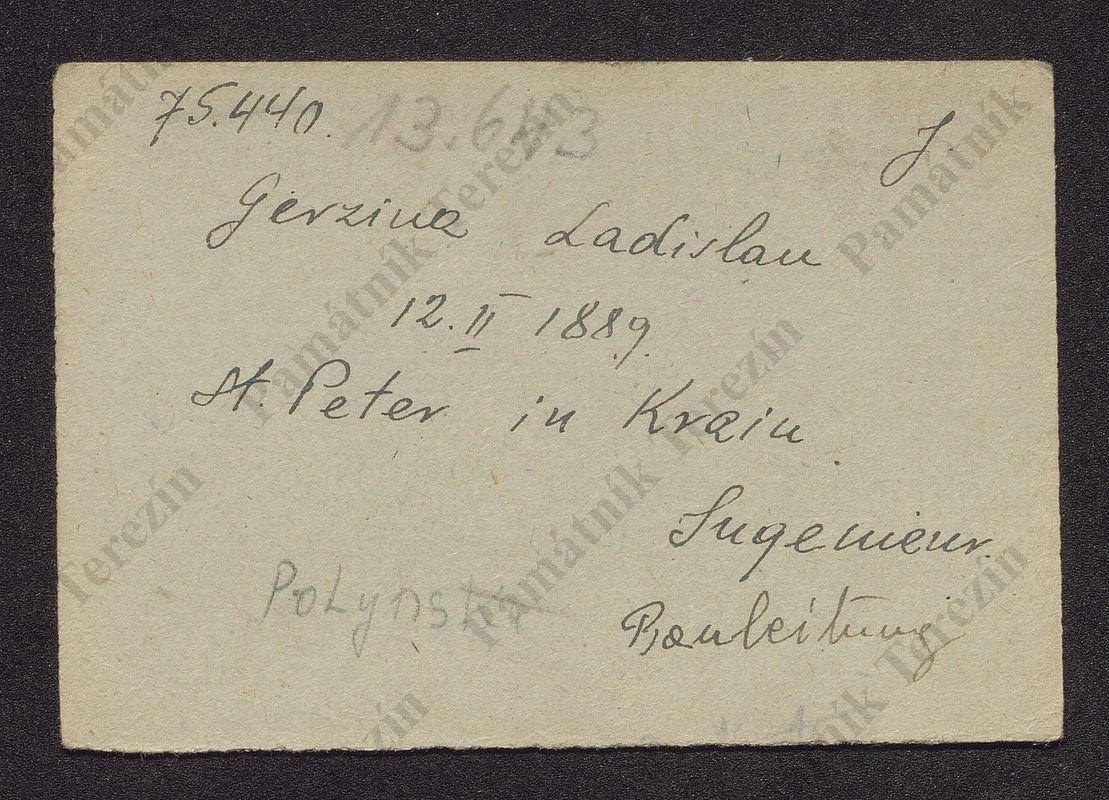 75.440. 13.643 J.
Gerzina Ladislau
12. II 1889.
St. Peter in Krain.
Ingenieur.
Bauleitung
Památník Terezín